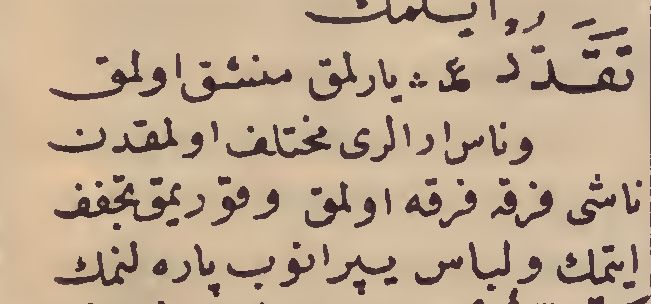 رد ايلمك
تَقَدُّدْ ع ث يارلمق منشق اولمق
وناس ارالرى مختلف اولمقدن
ناشى فرقه فرقه اولمق وقوريمق تجفف
ايتمك ولباس ييرانوب پاره لنمك